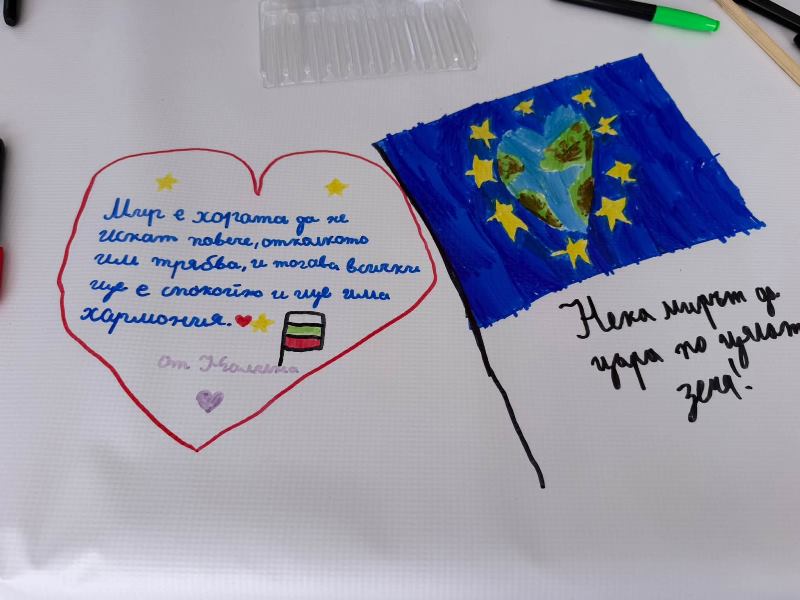 Мир е хората да не
искат повече, отколкото
им трябва, и тогава всички
ще е спокойно и ще има
хармония.
От
Нека мирът да
цари по цялата
земя!